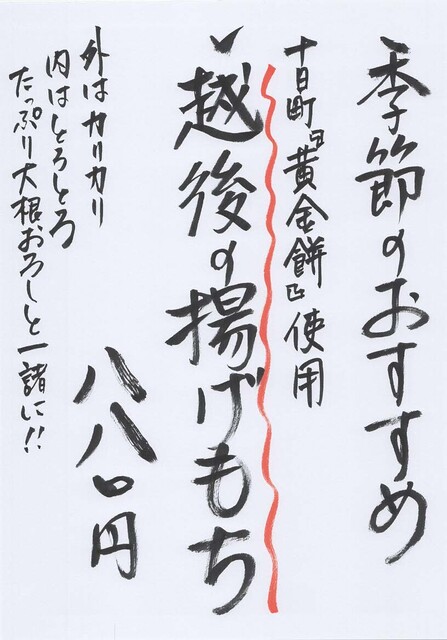 季節のおすすめ
十日町『黄金餅』使用
越後の揚げもち
八八〇円
外はカリカリ
内はとろとろ
たっぷり大根おろしと一諸に!!